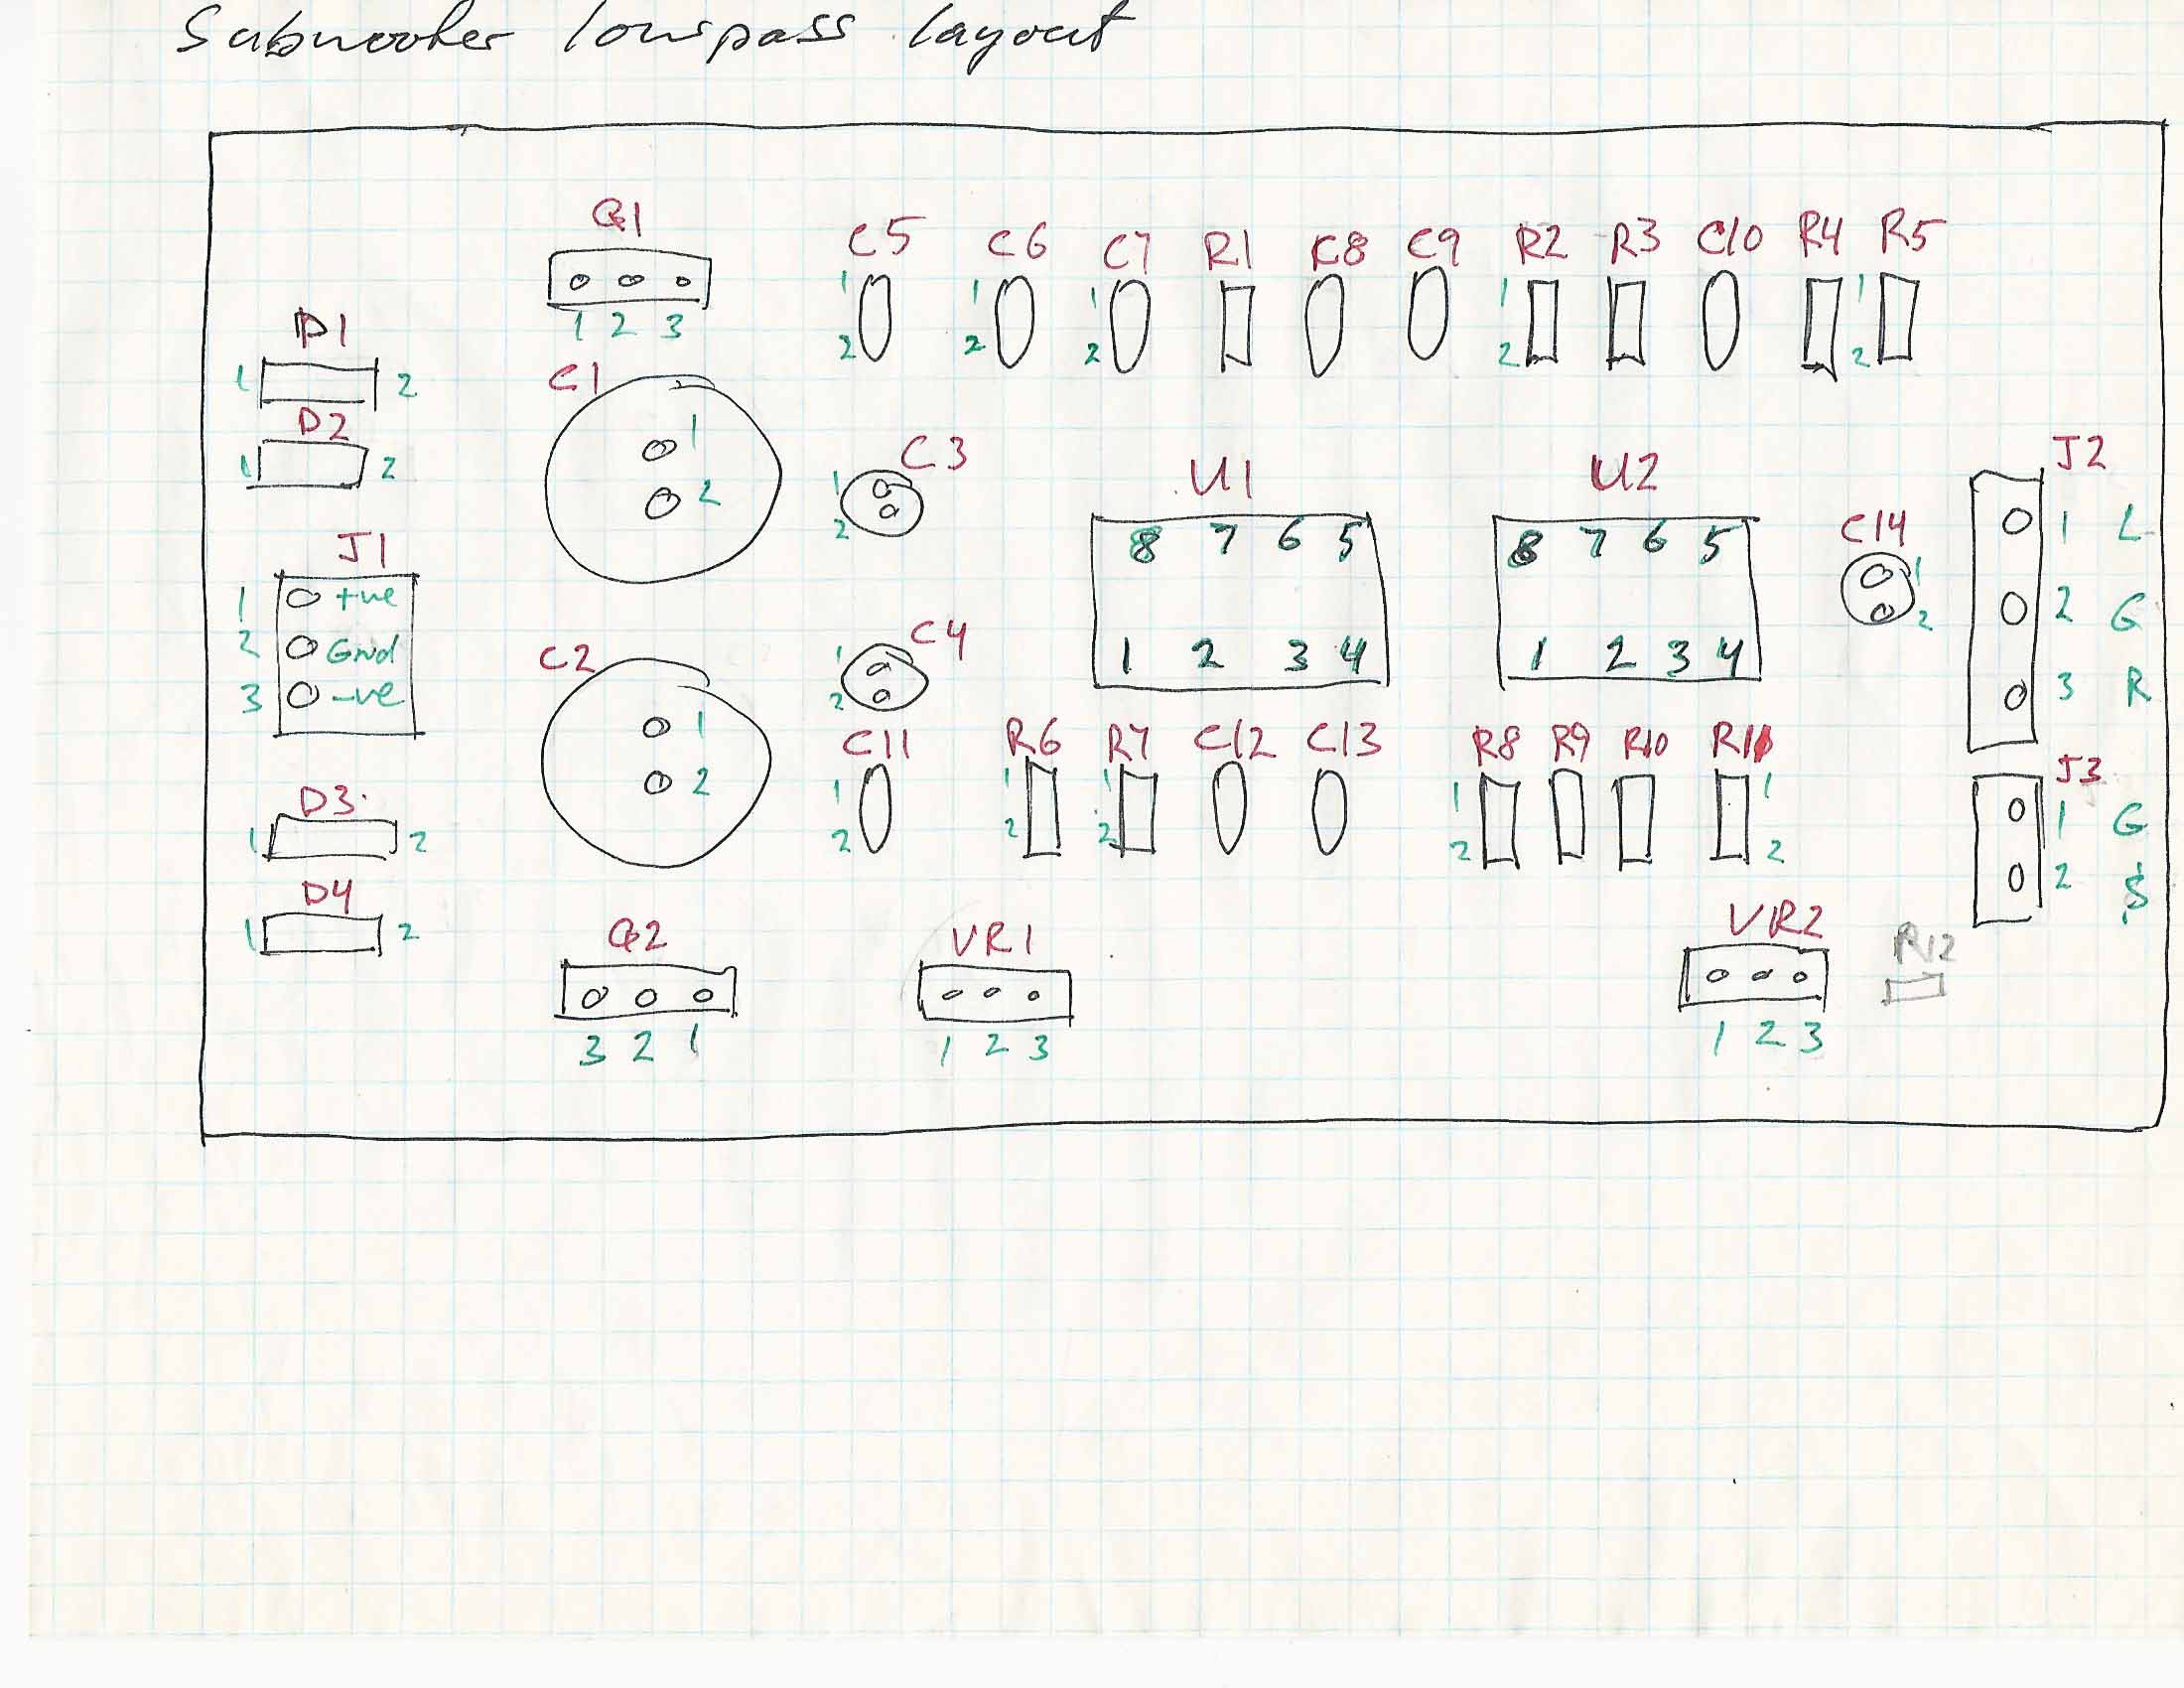 Subwoofer lowpass layout
Q1
1 2 3
C5 C6 C7 R1 C8 C9 R2 R3 C10 R4 R5
1 1 1 1 1
2 2 2 2 2
D1
1 2
D2
1 2
C1
1
2
C3
1
2
U1
8 7 6 5
1 2 3 4
U2
8 7 6 5
1 2 3 4
C14
1
2
J2
1 L
2 G
3 R
J1
1 +ve
2 Gnd
3 -ve
C2
1
2
C4
1
2
C11 R6 R7 C12 C13 R8 R9 R10 R11
1 1 1 1 1
2 2 2 2 2
J3
1 G
2 S
D3
1 2
D4
1 2
Q2
3 2 1
VR1
1 2 3
VR2
1 2 3
R12